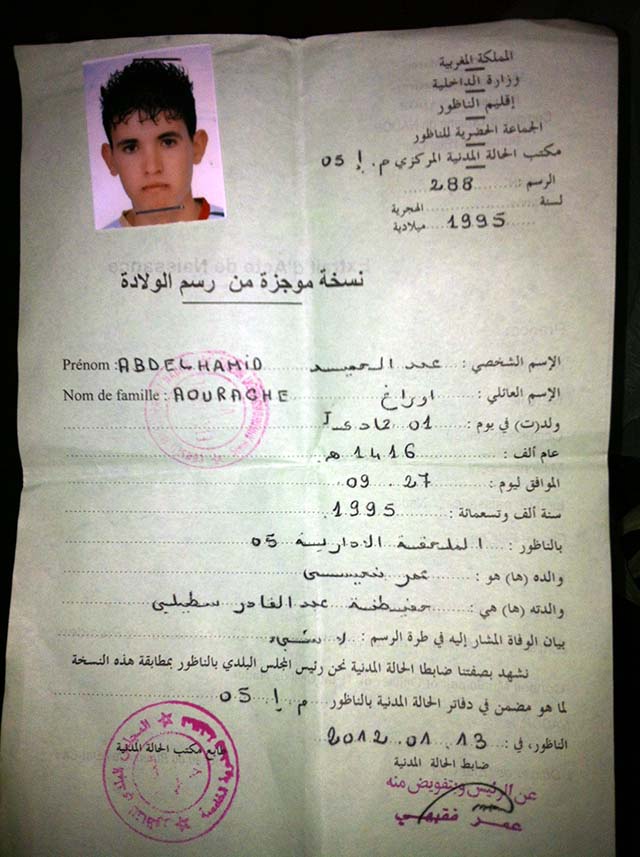 المملكة المغربية
وزارة الداخلية
إقليم الناظور
الجماعة الحضرية للناظور
مكتب الحالة المدنية المركزي م. إ 05
الرسم : 288
لسنة الهجرية
1995 ميلادية
نسخة موجزة من رسم الولادة
Prénom : ABDELHAMID عبد الحميد الإسم الشخصي :
Nom de famille : AOURAGHE اوراغ الإسم العائلي :
ولد(ت) في يوم : 01 جمادى I
عام ألف : 1416 هـ
الموافق ليوم : 27 . 09
سنة ألف وتسعمائة : 1995
بالناظور : الملحقة الادارية 05
والده (ها) هو : عمر بنعيسى
والدته (ها) هي : حفيظة عبد القادر
بيان الوفاة المشار إليه في طرة الرسم : لا شيء
نشهد بصفتنا ضابطا الحالة المدنية نحن رئيس المجلس البلدي بالناظور بمطابقة هذه النسخة
لما هو مضمن في دفاتر الحالة المدنية بالناظور م . إ . 05
الناظور، في : 13 . 01 . 2012
طابع مكتب الحالة المدنية
ضابط الحالة المدنية
عن الرئيس وبتفويض منه
عمر فقيهي